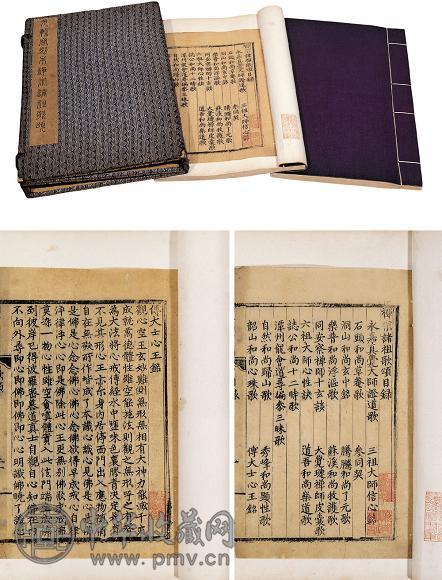 禪宗諸祖歌頌目錄
永嘉真覺大師證道歌 三祖大師信心銘
石頭和尚草菴歌 參同契
洞山和尚玄中銘 騰騰和尚了元歌
樂普和尚浮漚歌 蘇溪和尚牧護歌
同安察禪師十玄談 大覺璉禪師皮囊歌
誌公和尚十二時歌 道吾和尚樂道歌
潭州龍會道尋徧參三昧歌
自然和尚歸山歌 秀峰和尚顯性歌
韶山和尚心珠歌 傅大士心王銘
傅大士心王銘
觀心空王玄妙難測無形無相有大神力能滅千災
成就萬德體性雖空能施法則觀之無形呼之有聲
為大法將心戒傳經水中鹽味色裏膠青決定是有
不見其形心王亦爾身內居停面門出入應物隨情
自在無礙所作皆成了本識心識心見佛是心是佛
是佛是心念念佛心佛心念佛欲得早成戒心自律
淨律淨心心即是佛除此心王更無別佛欲求成佛
莫染一物心性雖空貪嗔體實入此法門端坐成佛
到彼岸已得波羅蜜慕道真士自觀自心知佛在內
不向外尋即心即佛即佛即心心明識佛曉了識心
中华收藏网
www.pmv.cn